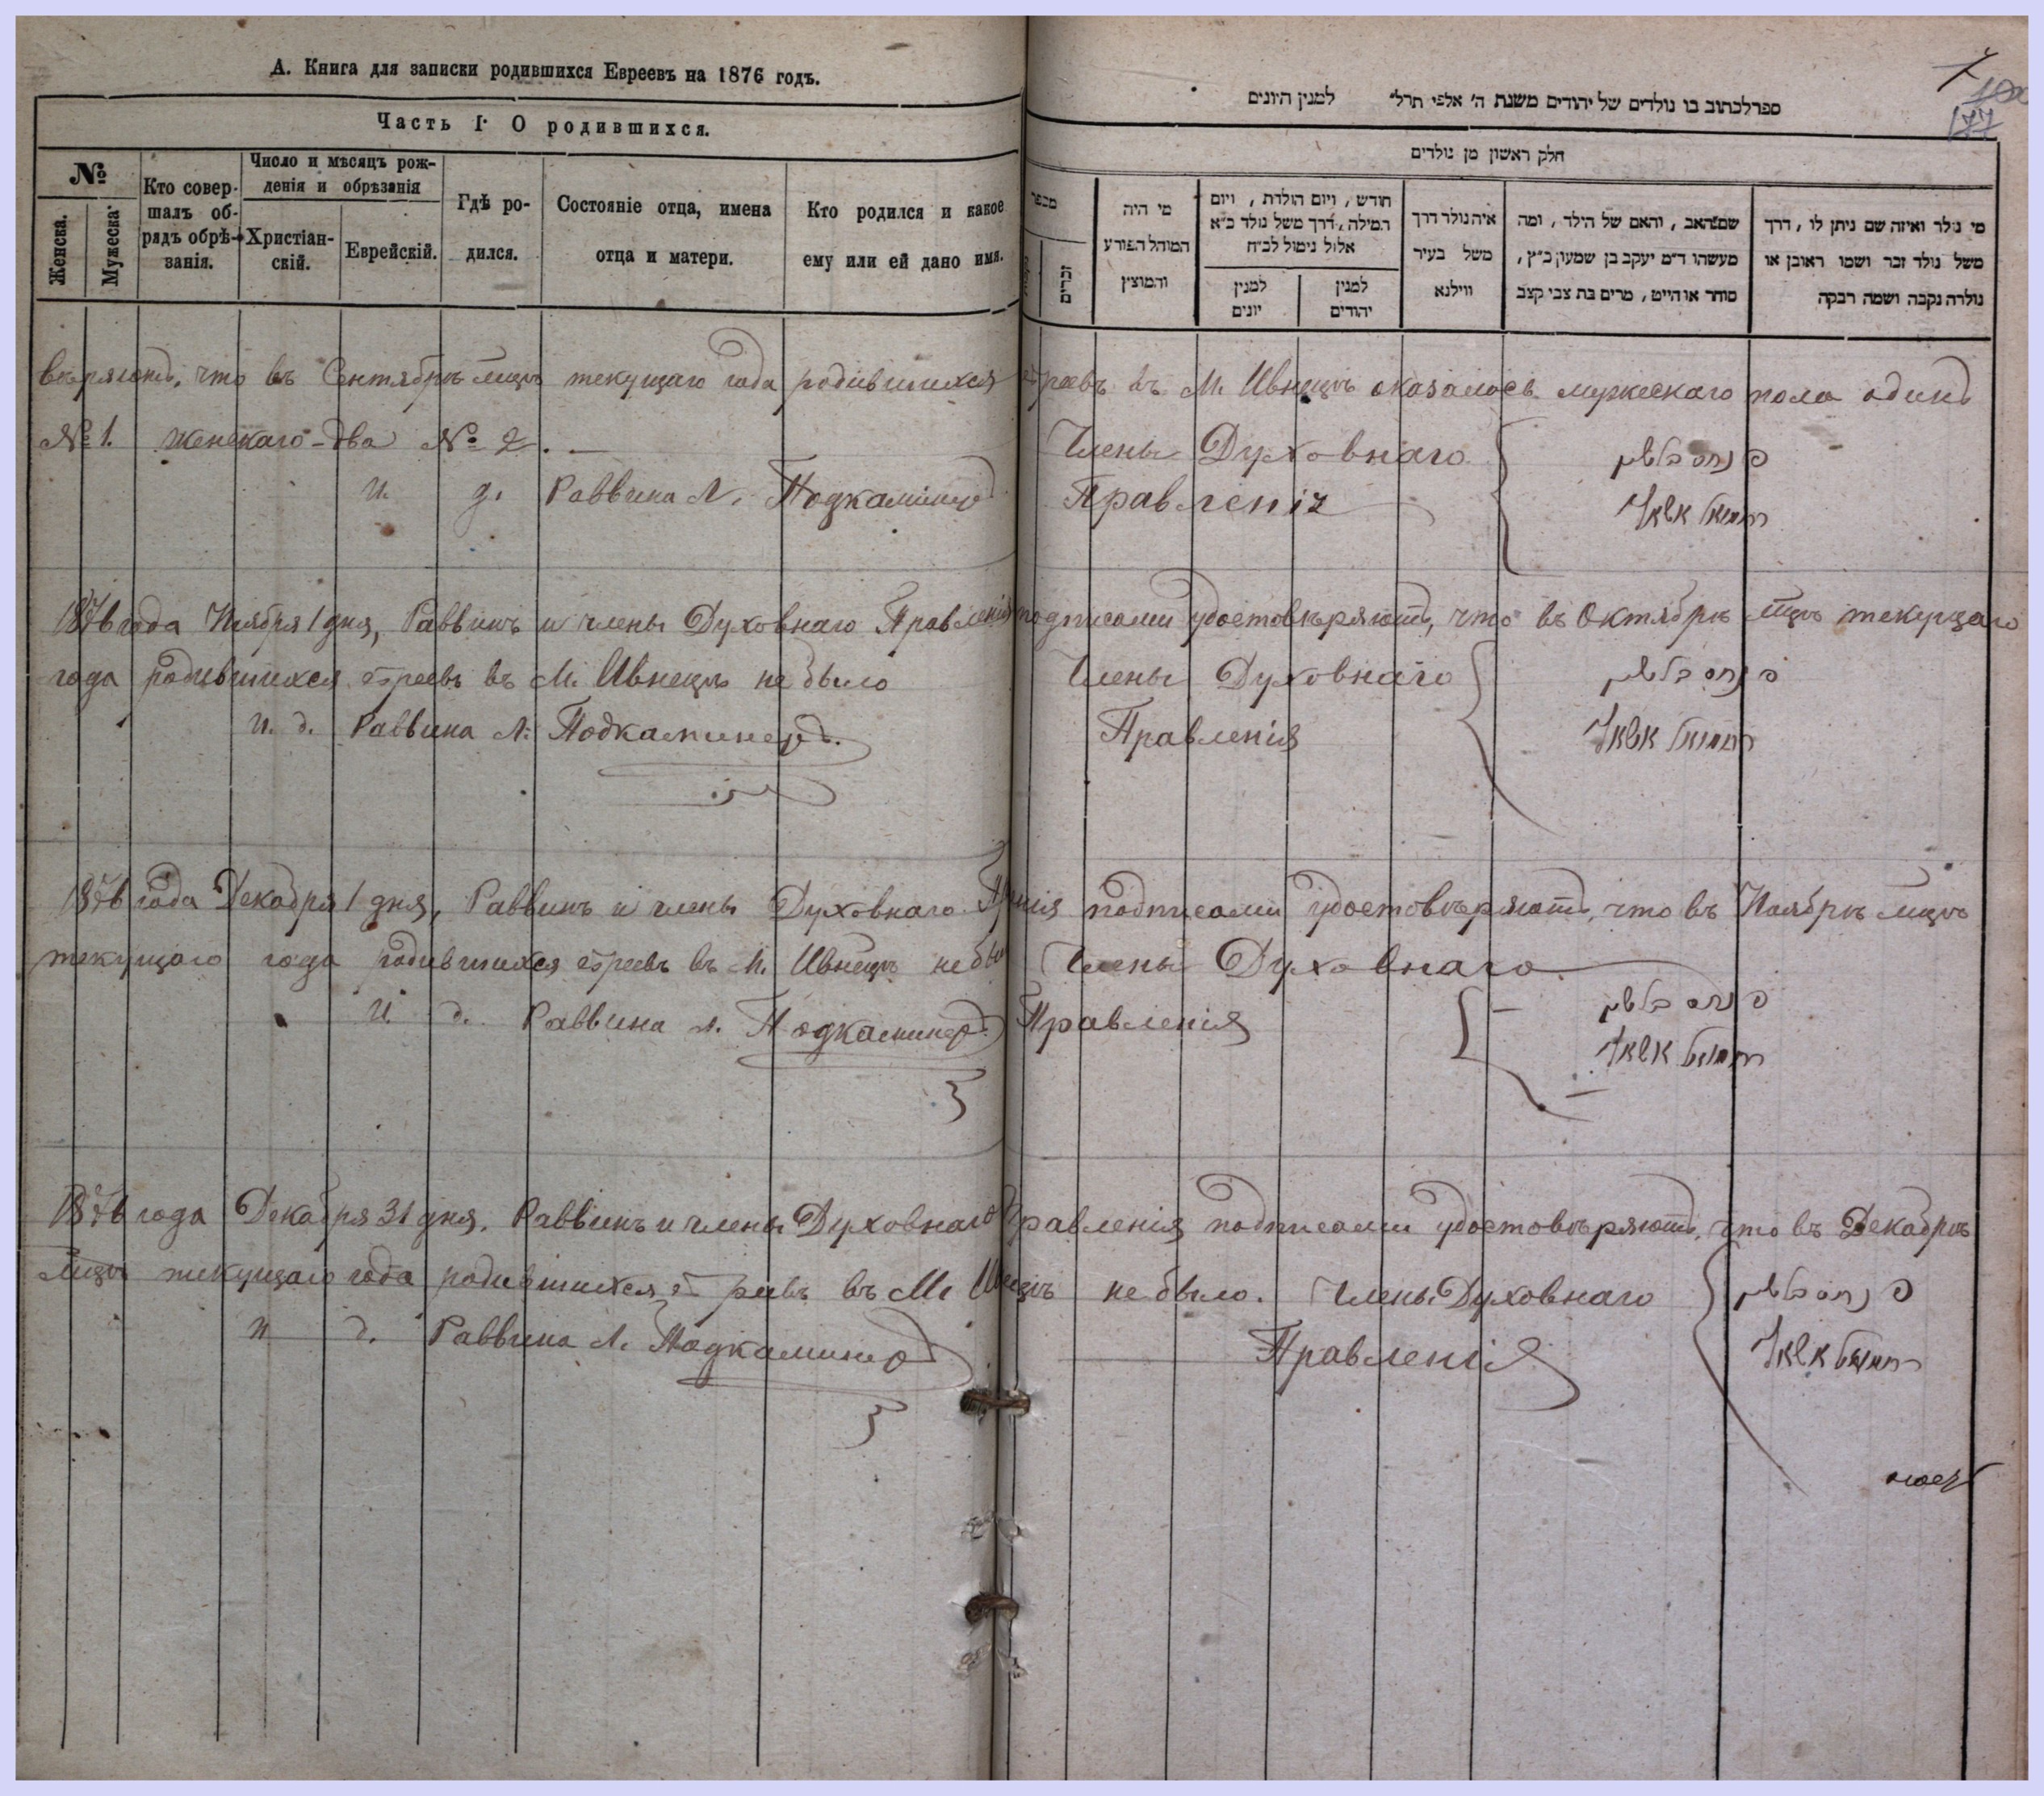 А. Книга для записки родившихся Евреевъ на 1876 годъ.
Часть I. О родившихся.
№
Женска.
Мужеска.
Кто совершалъ обрядъ обрѣзанія.
Число и мѣсяцъ рожденія и обрѣзанія
Христіанскій.
Еврейскій.
Гдѣ родился.
Состояніе отца, имена отца и матери.
Кто родился и какое ему или ей дано имя.
ספר לכתוב בו נולדים של יהודים משנת ה' אלפי תרל" למנין היונים
177
חלק ראשון מן נולדים
מספר
זכרים
מי היה המוהל הפורע והמוצץ
חודש, ויום הולדת, ויום המילה, דרך משל נולד כ"א אלול נימול לכ"ח
למנין יונים
למנין יהודים
איה נולד דרך משל בעיר ווילנא
שם האב, והאם של הילד, ומה מעשהו ד"מ יעקב בן שמעון כ"ץ, סוחר או חייט, מרים בת צבי קצב
מי נולד ואיזה שם ניתן לו, דרך משל נולד זכר ושמו ראובן או נולדה נקבה ושמה רבקה
вѣряютъ, что въ Сентябрѣ мцѣ текущаго года родившихся евреевъ въ М. Ивнецѣ оказалось мужескаго пола одинъ
№ 1. женскаго-два № 2. —
Члены Духовнаго
и. д. Раввина Л. Подкаминеръ
Правленія
1876 года Ноября 1 дня, Раввинъ и члены Духовнаго Правленія подписами удостовѣряютъ, что въ Октябрѣ мцѣ текущаго
года родившихся евреевъ въ М. Ивнецѣ не было
Члены Духовнаго
и. д. Раввина Л. Подкаминеръ.
Правленія
1876 года Декабря 1 дня, Раввинъ и члены Духовнаго Прнія подписами удостовѣряютъ, что въ Ноябрѣ мцѣ
текущаго года родившихся евреевъ въ М. Ивнецѣ не бы
Члены Духовнаго
и. д. Раввина Л. Подкаминеръ.
Правленія
1876 года Декабря 31 дня. Раввинъ и члены Духовнаго Правленія подписами удостовѣряютъ, что въ Декабрѣ
мцѣ текущаго года родившихся евреевъ въ М. Ивнецѣ не было. Члены Духовнаго
и. д. Раввина Л. Подкаминеръ
Правленія